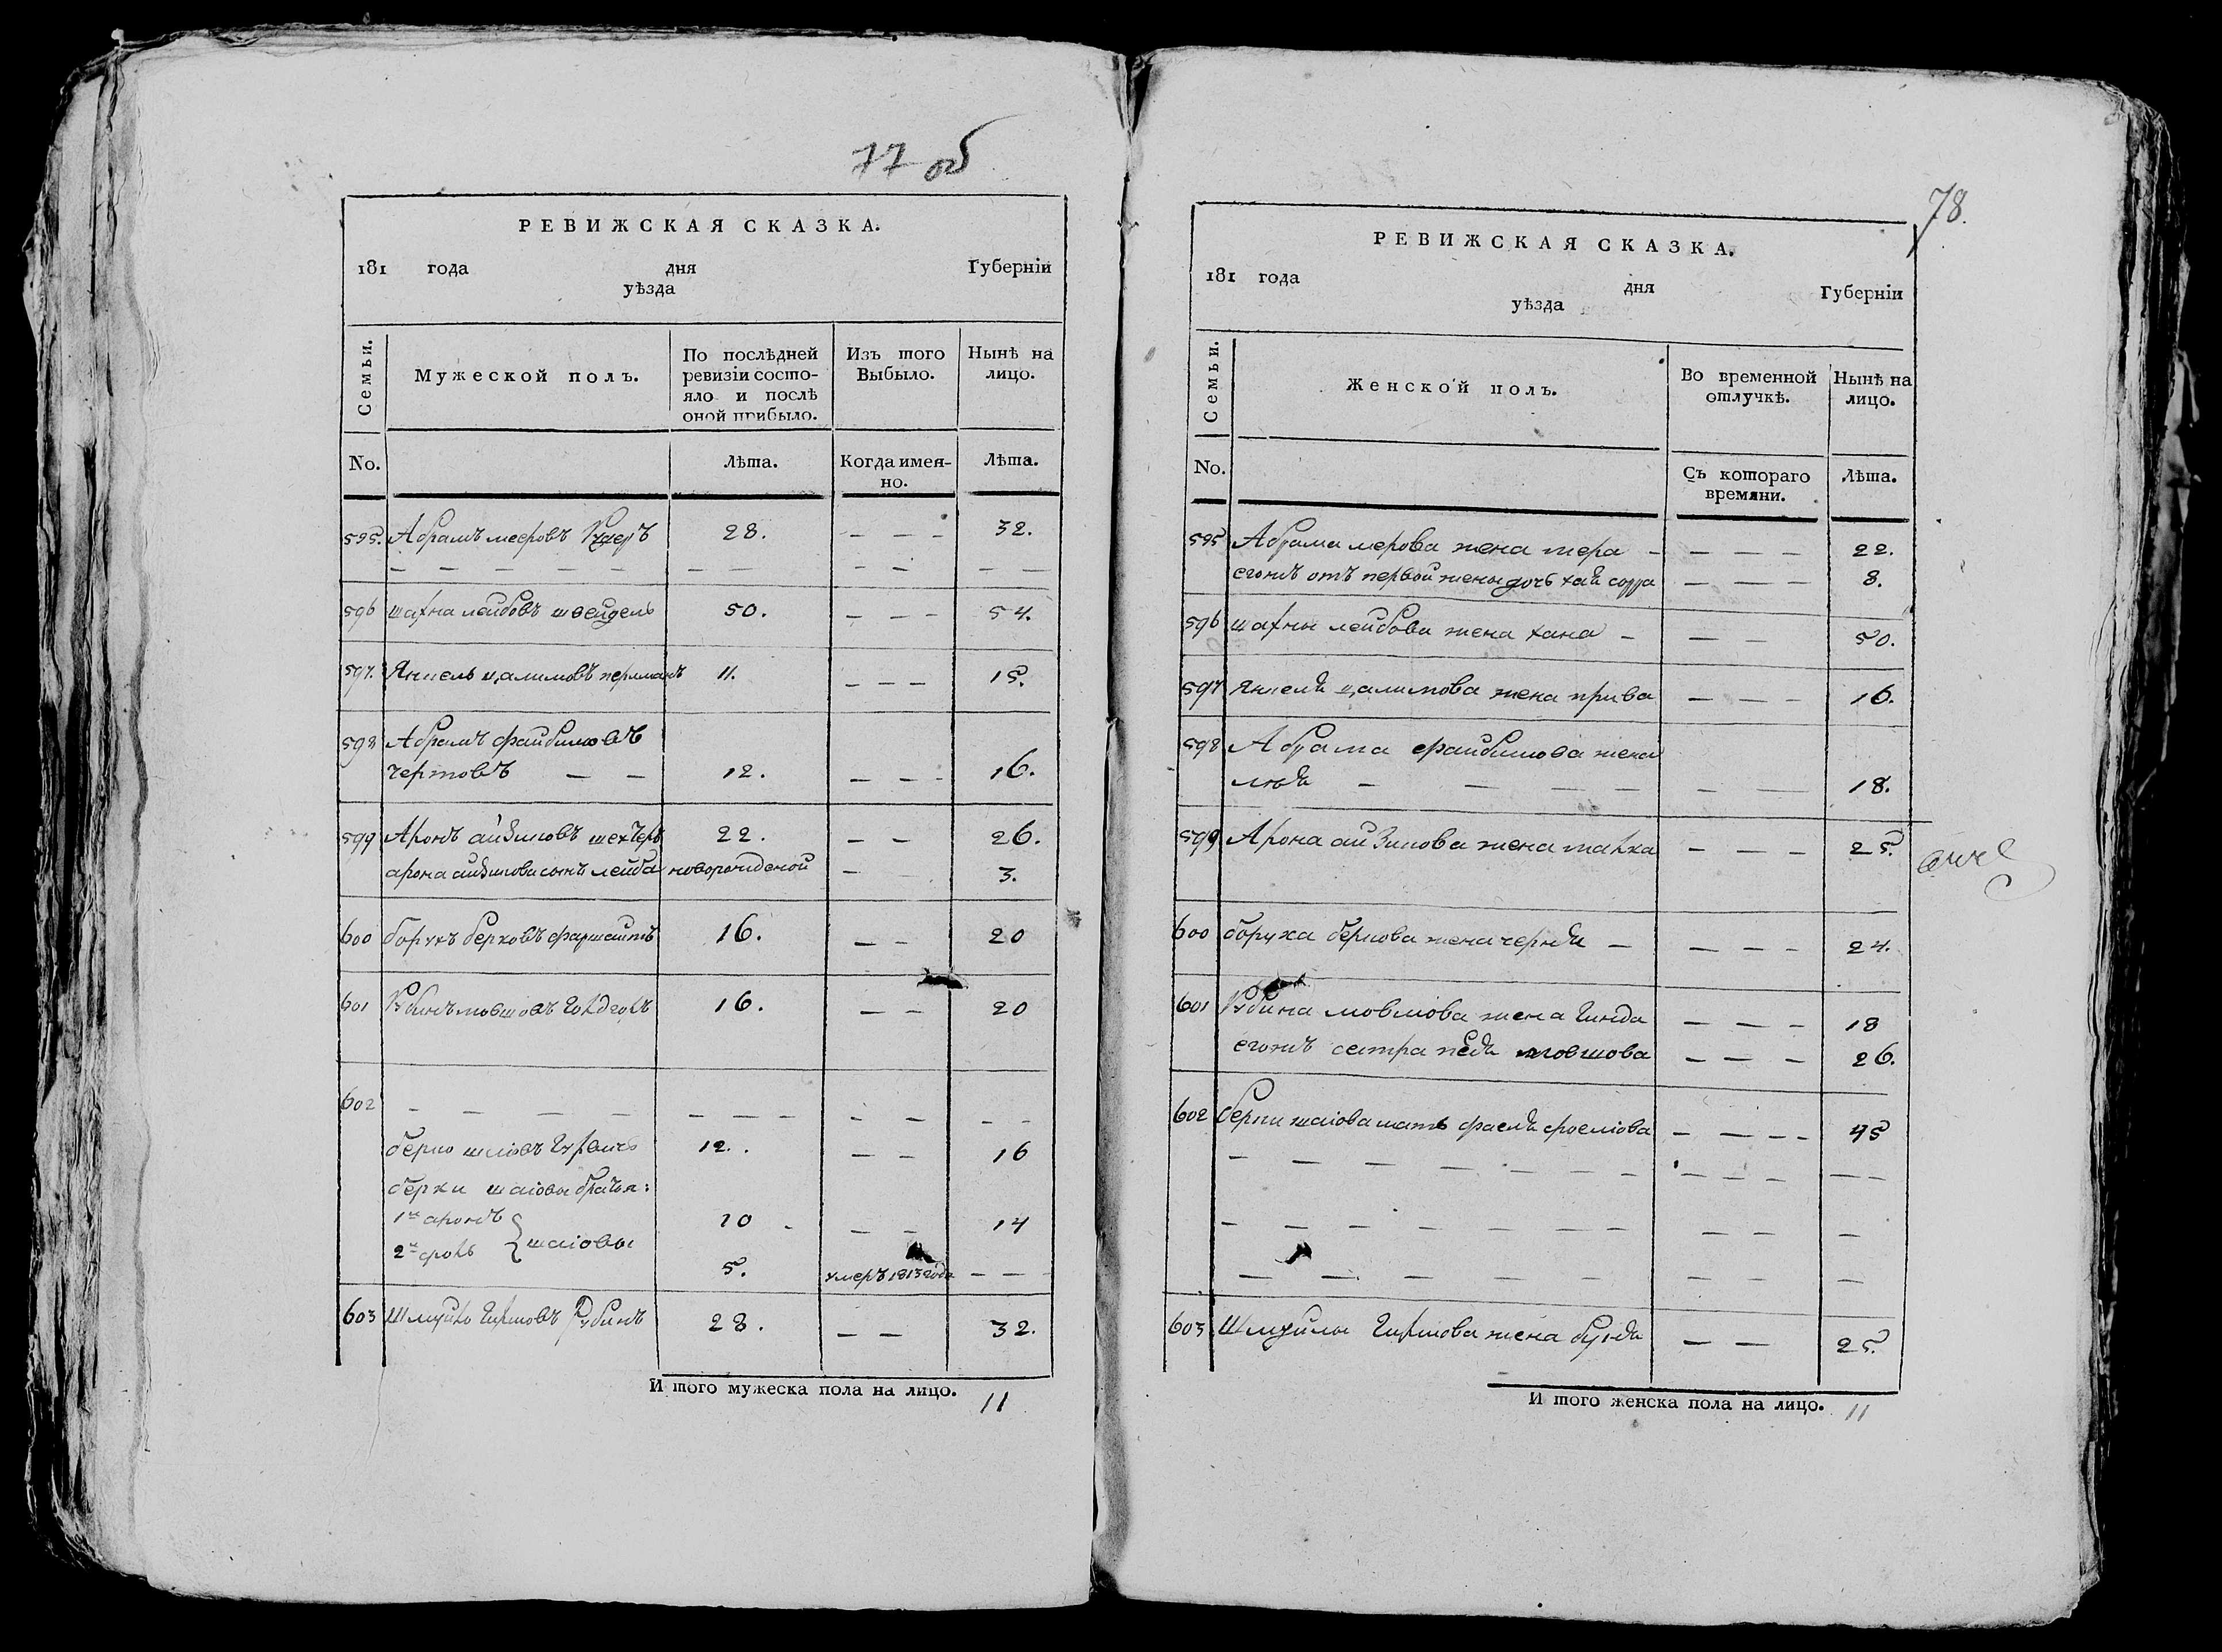 77 об
РЕВИЖСКАЯ СКАЗКА.
181 года дня Губерніи
уѣзда
Семьи.
Мужеской полъ.
По послѣдней ревизіи состо-
яло и послѣ
оной прибыло.
Изъ того
Выбыло.
Нынѣ на
лицо.
No.
Лѣта.
Когда имен-
но.
Лѣта.
595. Абрамъ мееровъ 28. — — — 32.
— — — — — — — — — — —
596 шахна лейбовъ швейдель 50. — — — 54.
597. Янкель цалимовъ перлманъ 11. — — — 15.
598 Абрамъ файбишовъ
чертовъ — — 12. — — — 16.
599 Аронъ айзиковъ шехтеръ 22. — — 26.
арона айзикова сынъ лейба новорожденой — 3.
600 борухъ берковъ 16. — — 20
601 Рубинъ мовшовъ 16. — — 20
602 — — — — — — — — — — —
берко шаіовъ 12. — — 16
берки шаіовы братья:
1й аронъ
2й {шаіовы
10 — — 14
5. умеръ 1813 года — — —
603 Шмуйло Гиршовъ Рубинъ 28. — — 32.
И того мужеска пола на лицо. 11
78.
РЕВИЖСКАЯ СКАЗКА.
181 года дня Губерніи
уѣзда
Семьи.
Женской полъ.
Во временной
отлучкѣ.
Нынѣ на
лицо.
No.
Съ котораго
времяни.
Лѣта.
595 Абрама мерова жена — — — — 22.
егожъ отъ первой жены дочь — — — 8.
596 шахны лейбова жена хана — — — 50.
597 янкеля цалимова жена — — — 16.
598 Абрама файбишова жена
— — — — — — 18.
599 Арона айзикова жена — — — 25.
600 боруха беркова жена черня — — — — 24.
601 Рубина мовшова жена Гинда — — — 18
егожъ сестра мовшова — — — 26.
602 берки шаіова мать — — — — 45
— — — — — — — — — — — —
— — — — — — — — — —
— — — — — — — — —
603 Шмуйлы Гиршова жена — — 25.
И того женска пола на лицо. 11